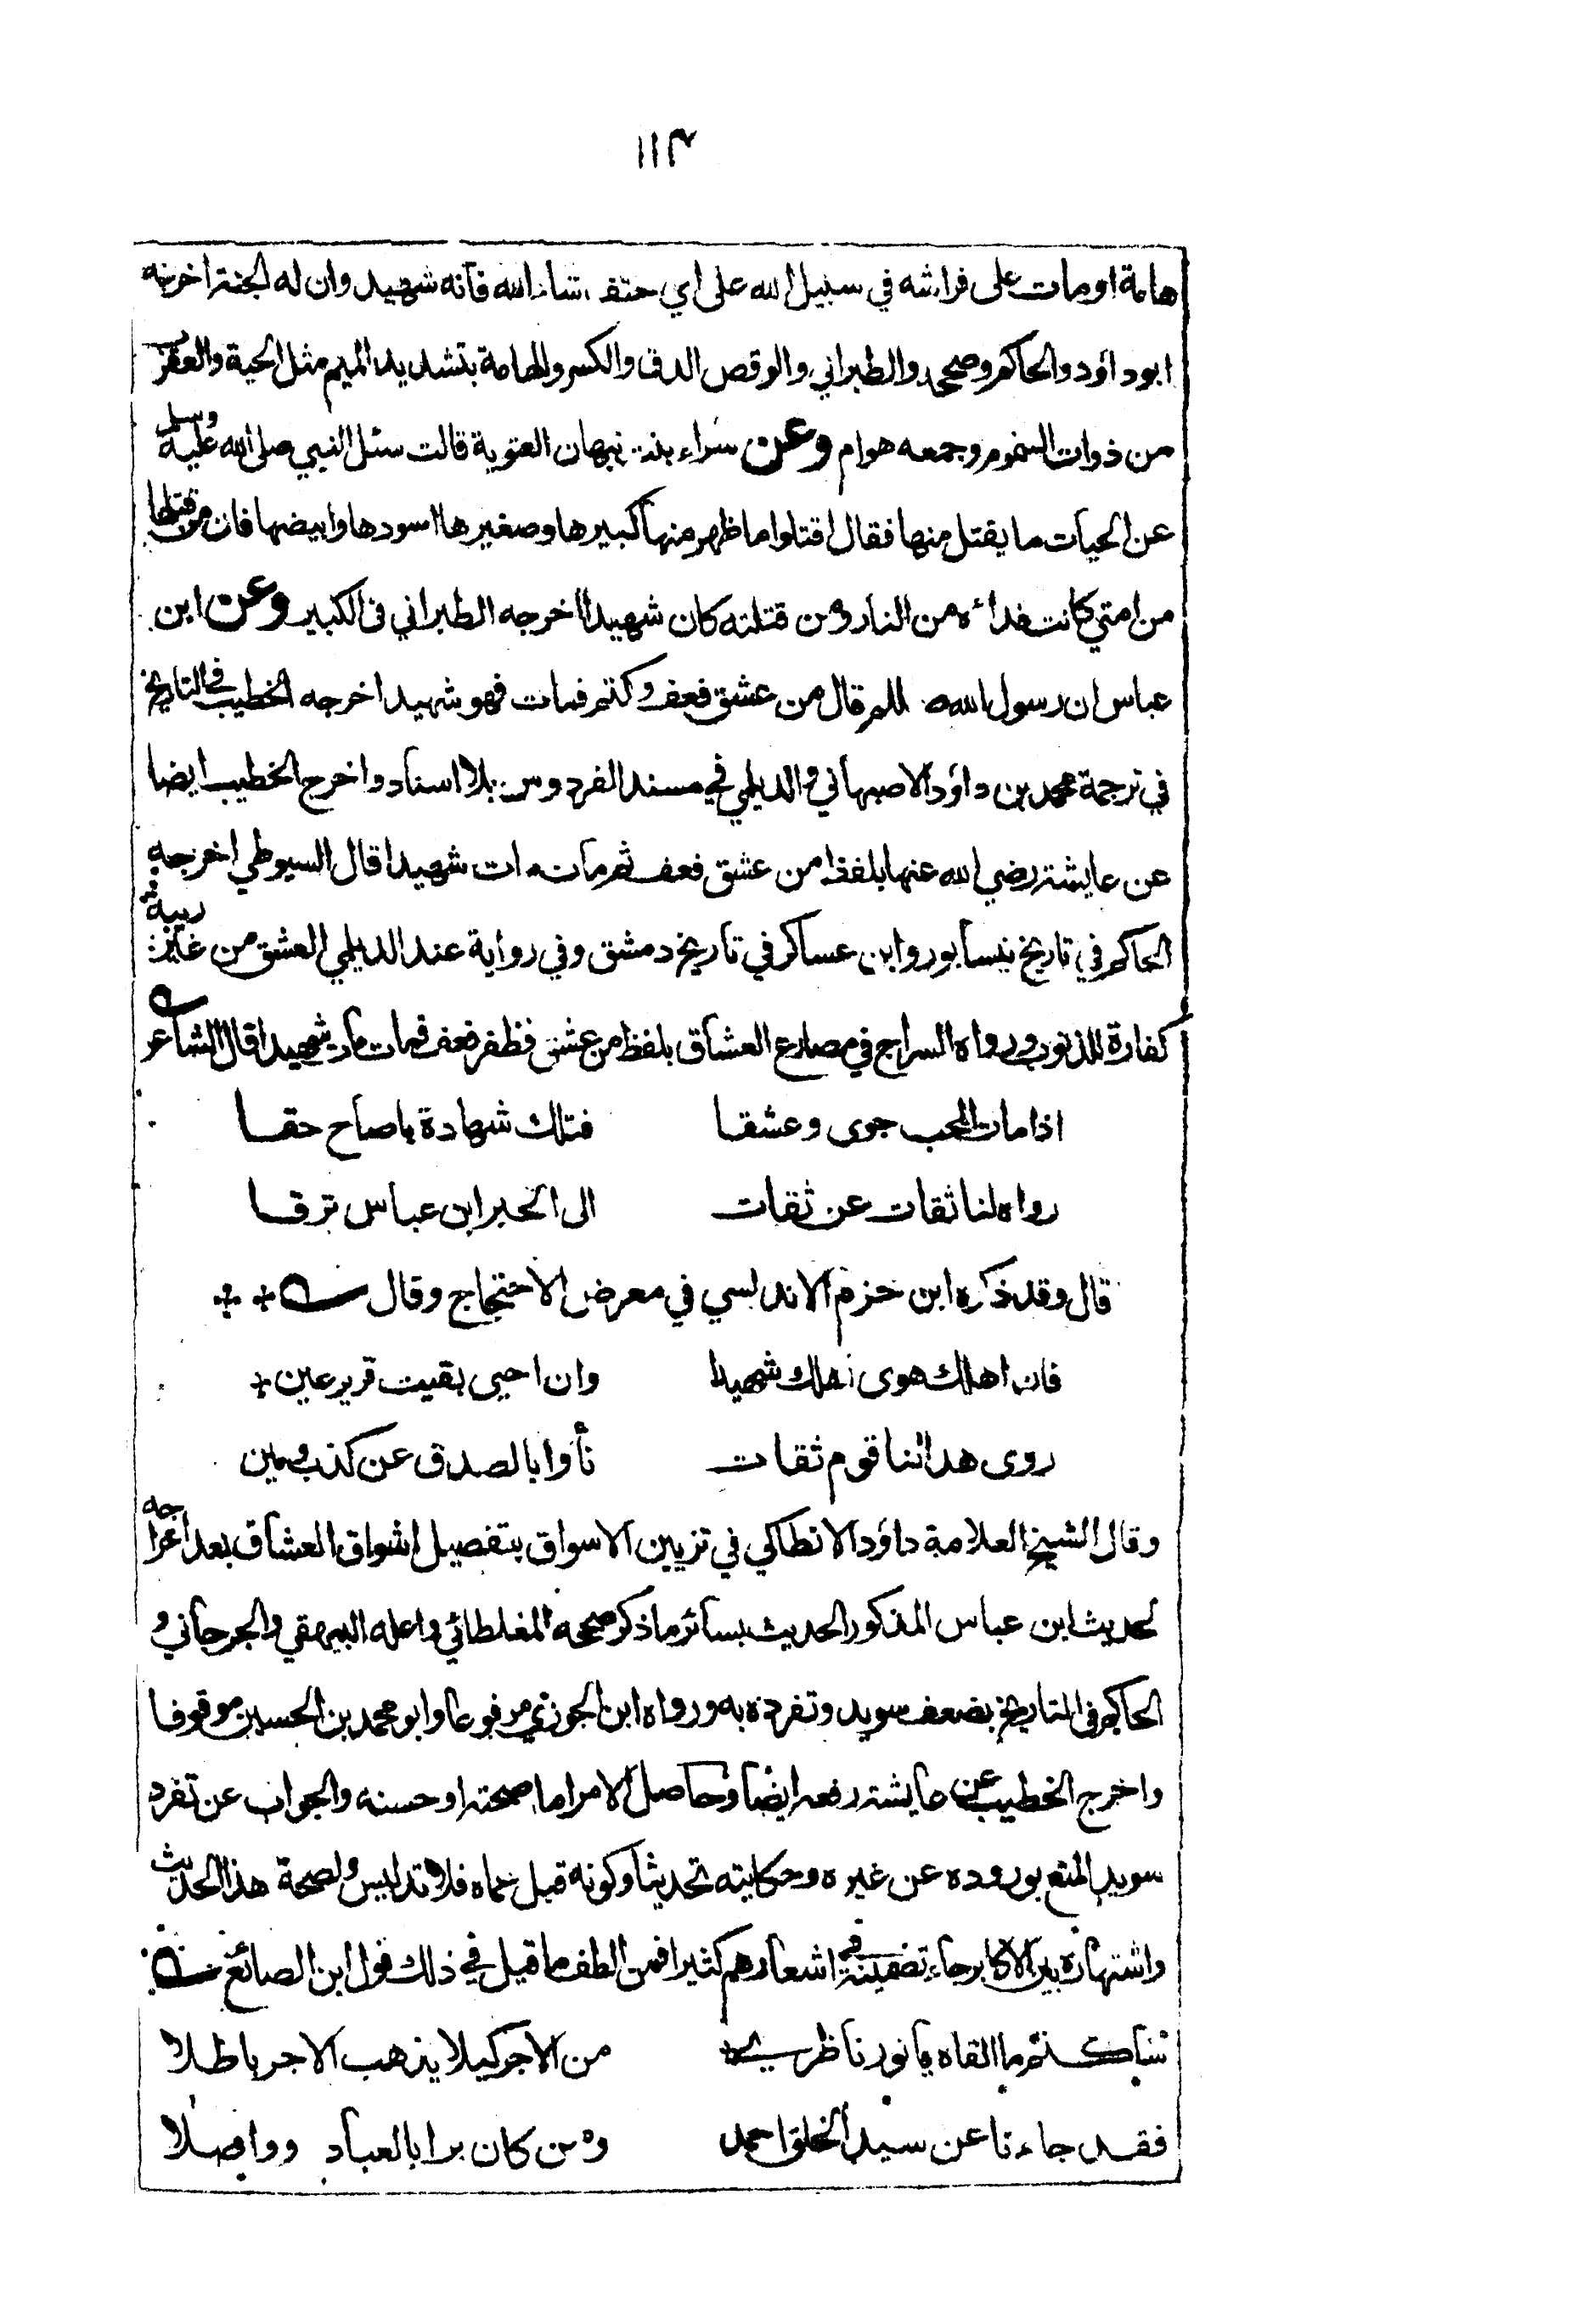 ١١٣
هامة او مات على فراشه في سبيل الله على اي حتف شاء الله فانه شهيد وان له الجنة اخرجه
ابو داؤد والحاكم وصححه والطبراني والوقص الدق والكسر والهامة بتشديد الميم مثل الحية والعقرب
من ذوات السموم وجمعه هوام وعن سراء بنت نبهان الغنوية قالت سئل النبي صلى الله عليه وسلم
عن الحيات ما يقتل منها فقال اقتلوا ما ظهر منها كبيرها وصغيرها اسودها وابيضها فان من قتلها
من امتي كانت فداءه من النار ومن قتلته كان شهيدا اخرجه الطبراني في الكبير وعن ابن
عباس ان رسول الله صللم قال من عشق فعف وكتم فمات فهو شهيد اخرجه الخطيب في التاريخ
في ترجمة محمد بن داؤد الاصبهاني والديلمي في مسند الفردوس بلا اسناد واخرج الخطيب ايضا
عن عايشة رضي الله عنها بلفظ من عشق فعف ثم مات مات شهيدا قال السيوطي اخرجه
الحاكم في تاريخ نيسابور وابن عساكر في تاريخ دمشق وفي رواية عند الديلمي العشق من غير ريبة
كفارة للذنوب ورواه السراج في مصارع العشاق بلفظ من عشق فظفر فعف فمات مات شهيدا قال الشاعر
اذا مات المحب جوى وعشقا فتلك شهادة يا صاح حقا
رواه لنا ثقات عن ثقات الى الحبر ابن عباس ترقا
قال وقد ذكره ابن حزم الاندلسي في معرض الاحتجاج وقال
فان اهلك هوى اهلك شهيدا وان احيى بقيت قرير عين
روى هذا لنا قوم ثقات نأوا بالصدق عن كذب ومين
وقال الشيخ العلامة داؤد الانطاكي في تزيين الاسواق بتفصيل اشواق العشاق بعد اخراجه
لحديث ابن عباس المذكور الحديث بسائر ما ذكر صححه المغلطائي واعله البيهقي والجرجاني و
الحاكم في التاريخ بضعف سويد وتفرده به ورواه ابن الجوزي مرفوعا وابو محمد بن الحسين موقوفا
واخرج الخطيب عن عايشة رفعه ايضا وحاصل الامر اما صحته او حسنه والجواب عن تفرد
سويد المنع بوروده عن غيره وحكايته تحديثا وكونه قبل عماه فلا تدليس ولصحة هذا الحديث
واشتهاره بين الاكابر جاء تضمينه في اشعارهم كثيرا فمن الطف ما قيل في ذلك قول ابن الصائغ
سأكتم ما القاه يا نور ناظري من الاجر كيلا يذهب الاجر باطلا
فقد جاءنا عن سيد الخلق احمد ومن كان برا بالعباد وواصلا